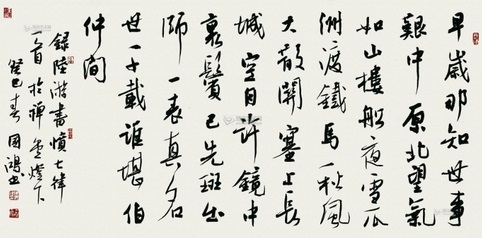 早歲那知世事
艱中原北望氣
如山樓船夜雪瓜
洲渡鐵馬秋風
大散關塞上長
城空自許鏡中
衰鬢已先斑出
師一表真名
世千載誰堪伯
仲間
錄陸游書憤七律
一首於禪堂燈下
癸巳春國鴻書